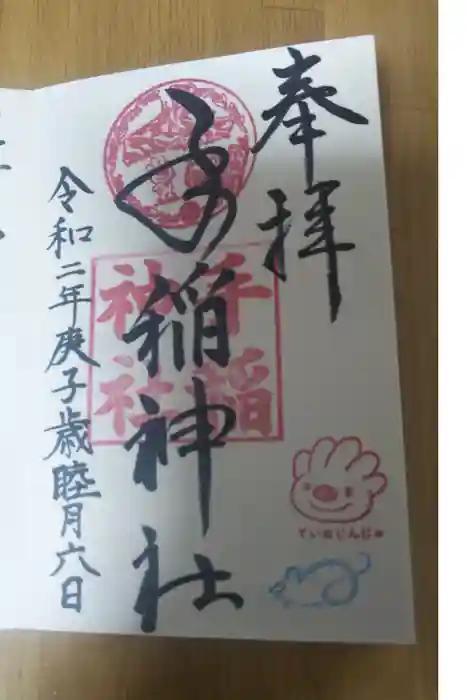 奉拝
手稲神社
手稲
神社
令和二年庚子歳睦月六日
ていねじんじゃ